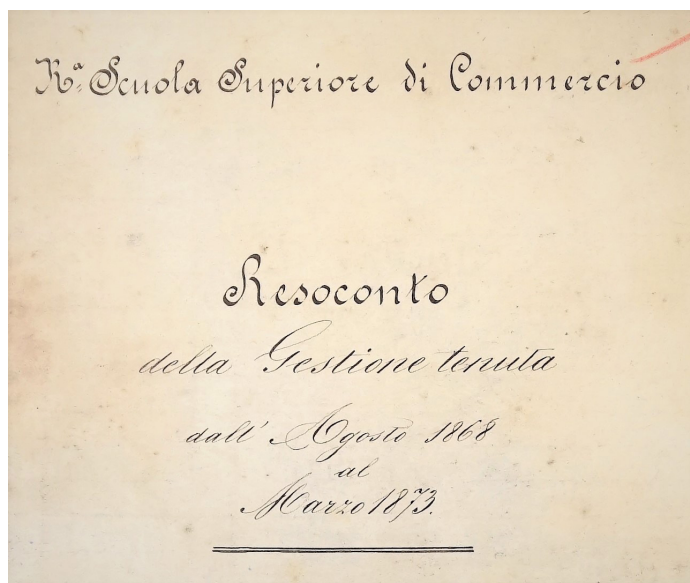 Rª Scuola Superiore di Commercio
Resoconto
della Gestione tenuta
dall' Agosto 1868
al
Marzo 1873.